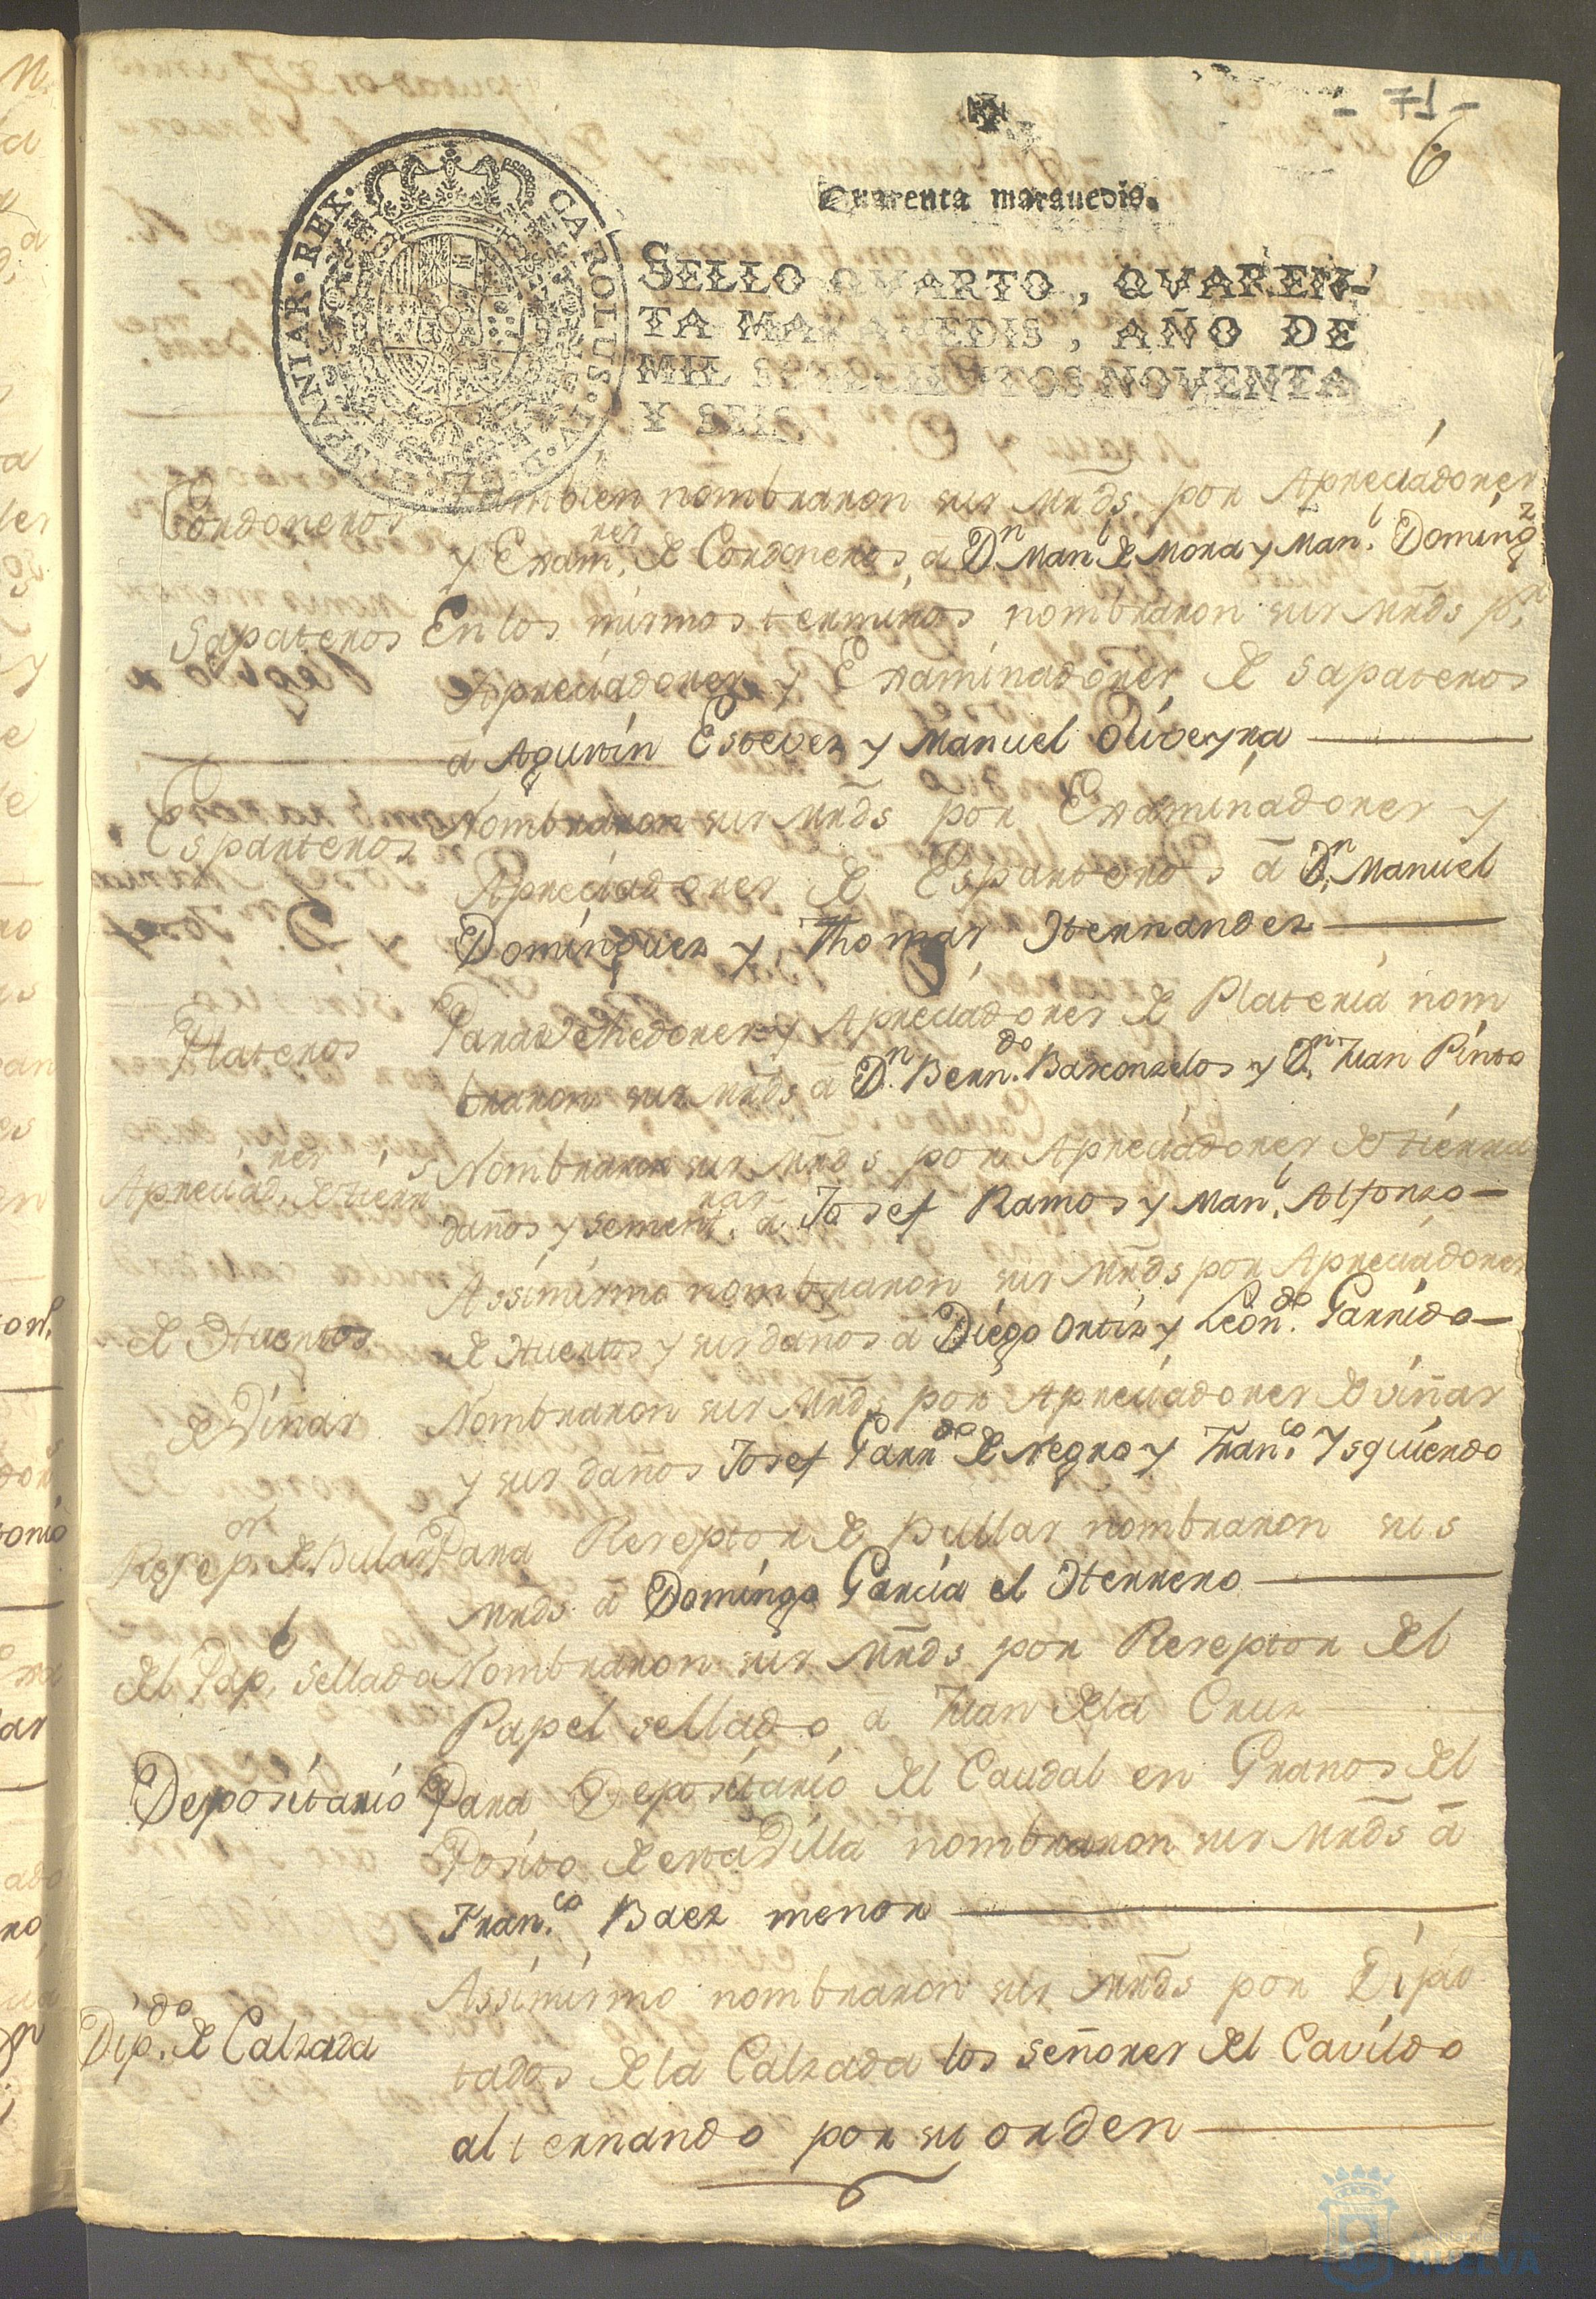 - 71 -
6
Quarenta marauedis.
CAROLUS · IV · D · G · HISPANIAR · REX ·
SELLO QVARTO, QVAREN-
TA MARAVEDIS, AÑO DE
MIL SETECIENTOS NOVENTA
Y SEIS.
Cordoneros
Tambien nombraron sus mrds. por Apreciadores
y Exam.res de Cordoneros, a Dn. Manl. de Mora y Manl. Domingz
Sapateros
En los mismos terminos nombraron sus mrds pa.
Apreciadores y Examinadores de Sapateros
a Agustin Estevez y Manuel Oliveyra
Esparteros
Nombraron sus mrds por Examinadores y
Apreciadores de Esparteros a Dn. Manuel
Dominguez y Thomas Hernandez
Plateros
Para Vehedores y Apreciadores de Plateria nom
braron sus mrds a Dn. Bern.do Basconzelos y Dn. Juan Pinto
Apreciad.res de tierrs
Nombraron sus mrds por Apreciadores de tierra
daños y sement.ras a Josef Ramos y Manl. Alfonzo
de Huertos
Assimismo nombraron sus mrds por Apreciadores
de Huertos y sus daños a Diego Ortiz y Leon.do Garrido
de Viñas
Nombraron sus mrds por Apreciadores de viñas
y sus daños Josef Garr.do de Negro y Fran.co Ysquierdo
Resep.or de Bulas
Para Reseptor de Bullas nombraron sus
mrds a Domingo Garcia el Herrero
del Papl. Sellado
Nombraron sus mrds por Reseptor del
Papel sellado a Juan de la Cruz
Depositario
Para Depositario del Caudal en Granos del
Posito de esta Villa nombraron sus mrds a
Fran.co Baez menor
Dip.do de Calzada
Assimismo nombraron sus mrds por Dipu
tados de la Calzada los señores del Cavildo
alternando por su orden
HUELVA